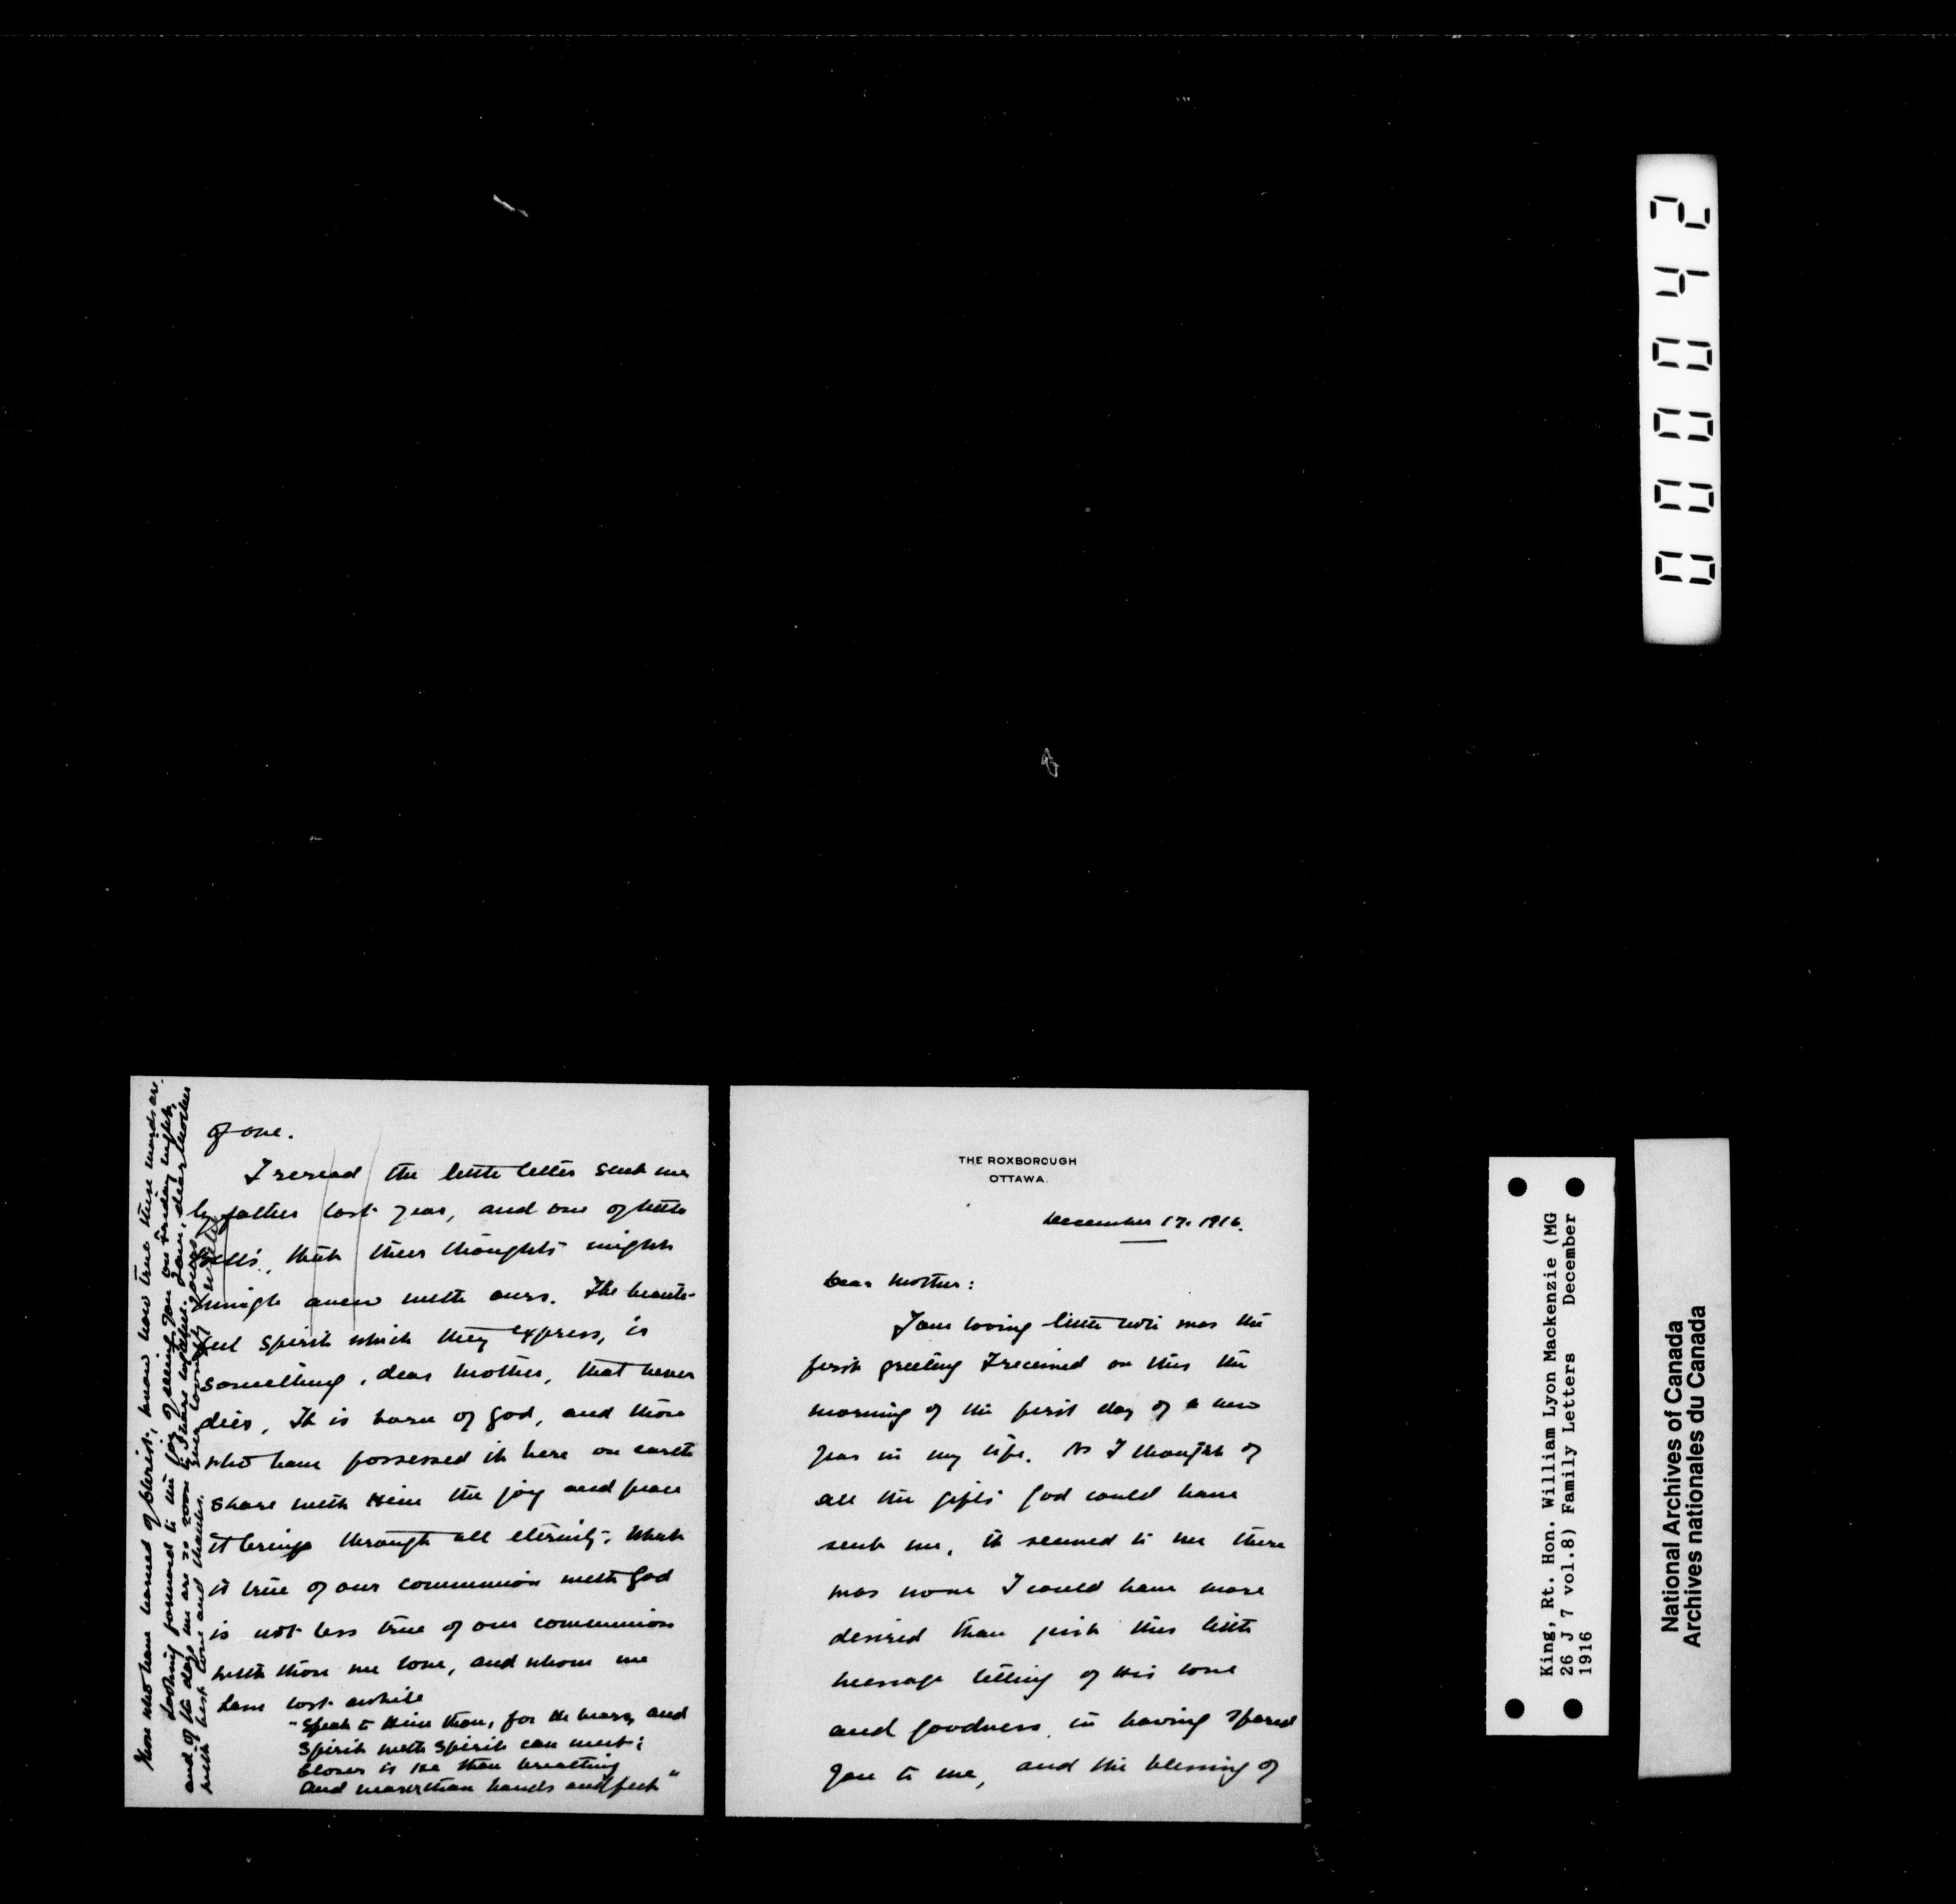 THE ROXBOROUGH
OTTAWA.
December 17. 1916.
Dear Mother:
Your loving little was the
first greeting I received on this the
morning of the first day of a new
year in my life. As I thought of
all the gifts God could have
sent me, it seemed to me there
was none I could have more
desired than just this little
message telling of His love
and goodness in having spared
you to me, and the blessing of
of one.
I reread the little letter sent me
by father last year, and one of little
Bell's, that their thoughts might
mingle anew with ours. The beauti-
ful spirit which they express, is
something, dear mother, that never
dies. It is born of God, and those
who have possessed it here on earth
share with Him the joy and peace
it brings through all eternity. What
is true of our communion with God
is not less true of our communion
with those we love, and whom we
have lost awhile
"Speak to Him thou, for He hears, and
Spirit with Spirit can meet;
Closer is He than breathing
And nearer than hands and feet"
Those who have learned of Christ, know how true these words are.
Looking forward to the joy of seeing you on Friday night,
and of the days we are so soon to share together. Dear, dear Mother
with best love and thanks.
Ever lovingly yours
King, Rt. Hon. William Lyon Mackenzie (MG
26 J 7 vol.8) Family Letters December
1916
National Archives of Canada
Archives nationales du Canada
000042